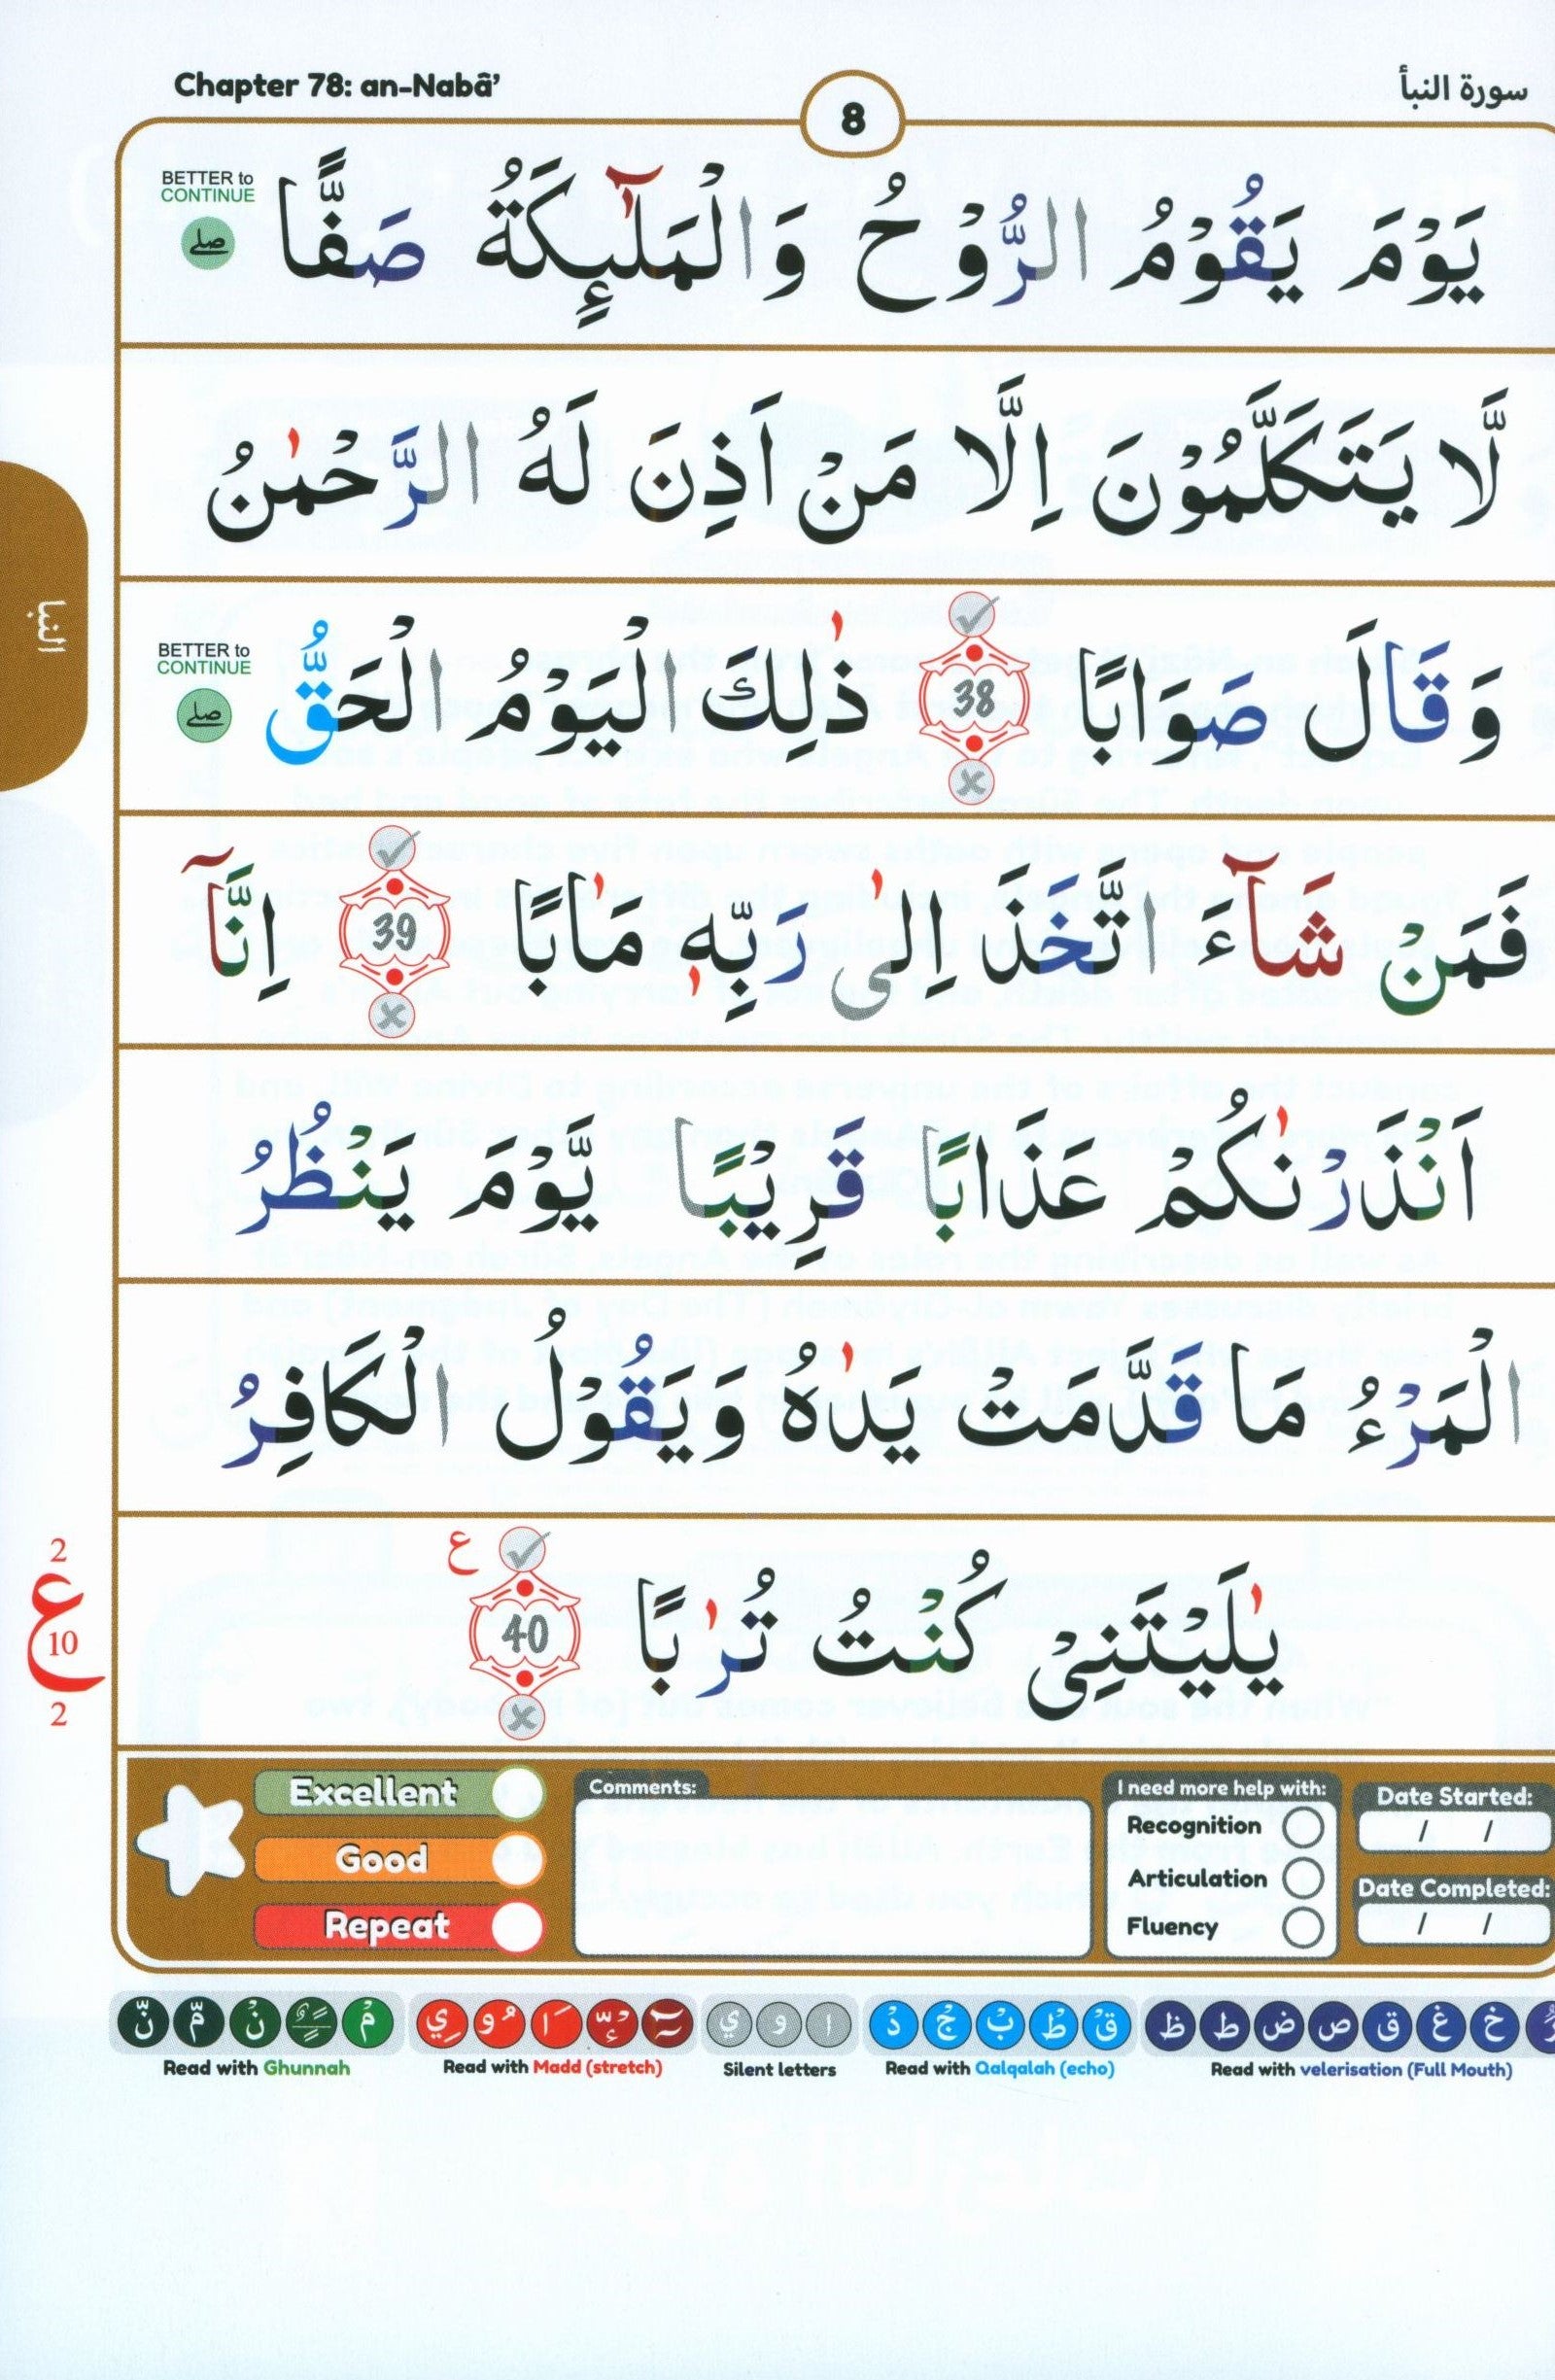 Chapter 78: an-Nabā’
8
سورة النبأ
يَوْمَ يَقُوْمُ الرُّوْحُ وَالْمَلٰٓىِٕكَةُ صَفًّا
BETTER to CONTINUE
صلے
لَّا يَتَكَلَّمُوْنَ اِلَّا مَنْ اَذِنَ لَهُ الرَّحْمٰنُ
وَقَالَ صَوَابًا 38 ذٰلِكَ الْيَوْمُ الْحَقُّ
BETTER to CONTINUE
صلے
النبا
فَمَنْ شَآءَ اتَّخَذَ اِلٰى رَبِّهٖ مَاٰبًا 39 اِنَّآ
اَنْذَرْنٰكُمْ عَذَابًا قَرِيْبًا يَّوْمَ يَنْظُرُ
الْمَرْءُ مَا قَدَّمَتْ يَدٰهُ وَيَقُوْلُ الْكَافِرُ
يٰلَيْتَنِيْ كُنْتُ تُرٰبًا 40 ع
2
ع
10
2
Excellent
Good
Repeat
Comments:
I need more help with:
Recognition
Articulation
Fluency
Date Started:
/ /
Date Completed:
/ /
نّ مّ نْ ـًـٍـٌ مْ
Read with Ghunnah
Read with Madd (stretch)
ا و ي
Silent letters
قْ طْ بْ جْ دْ
Read with Qalqalah (echo)
خ غ ق ص ض ط ظ
Read with velerisation (Full Mouth)